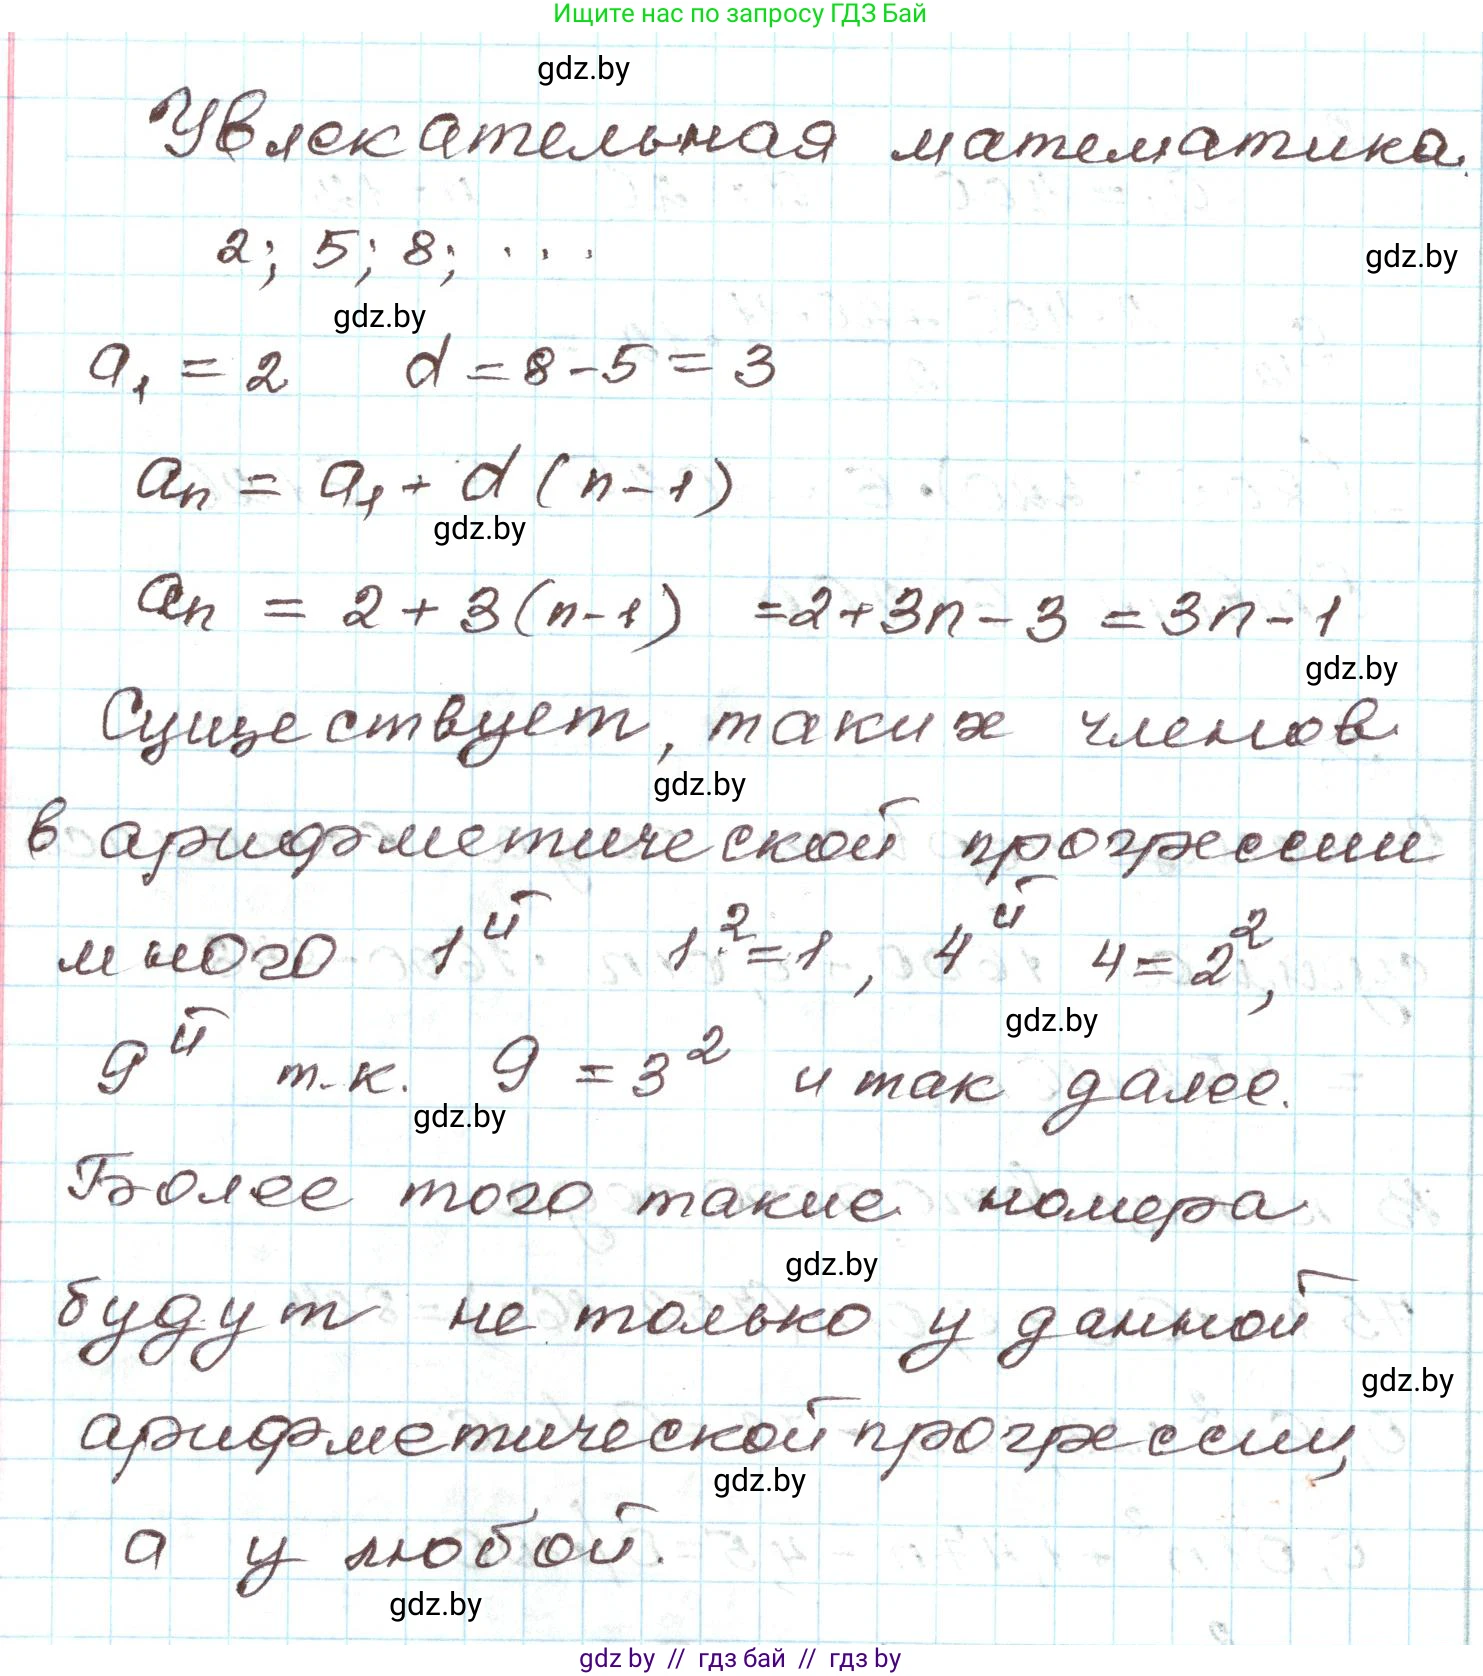 Ищите нас по запросу ГДЗ Бай
gdz.by
Увлекательная математика.
2; 5; 8; ...
gdz.by
gdz.by
a₁ = 2 d = 8 - 5 = 3
aₙ = a₁ + d (n - 1)
gdz.by
aₙ = 2 + 3 (n - 1) = 2 + 3n - 3 = 3n - 1
gdz.by
Существует, таких членов
gdz.by
в арифметической прогрессии
много 1ый 1² = 1, 4ый 4 = 2²,
gdz.by
9ый т.к. 9 = 3² и так далее.
gdz.by
Более того такие номера
gdz.by
будут не только у данной
gdz.by
арифметической прогрессии,
gdz.by
а у любой.
gdz.by
gdz by // гдз бай // гдз by